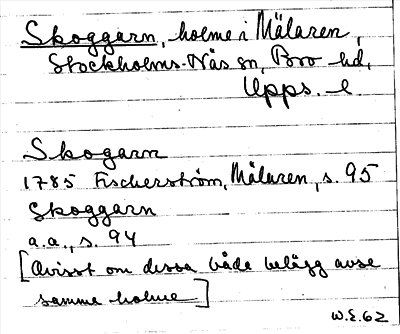 Skoggarn, holme i Mälaren,
Stockholms-Näs sn, Bro hd,
Upps. l
Skogarn
1785 Fischerström, Mälaren, s. 95
Skoggarn
a.a., s. 94
[Ovisst om dessa både belägg avse
samma holme]
W.E.62